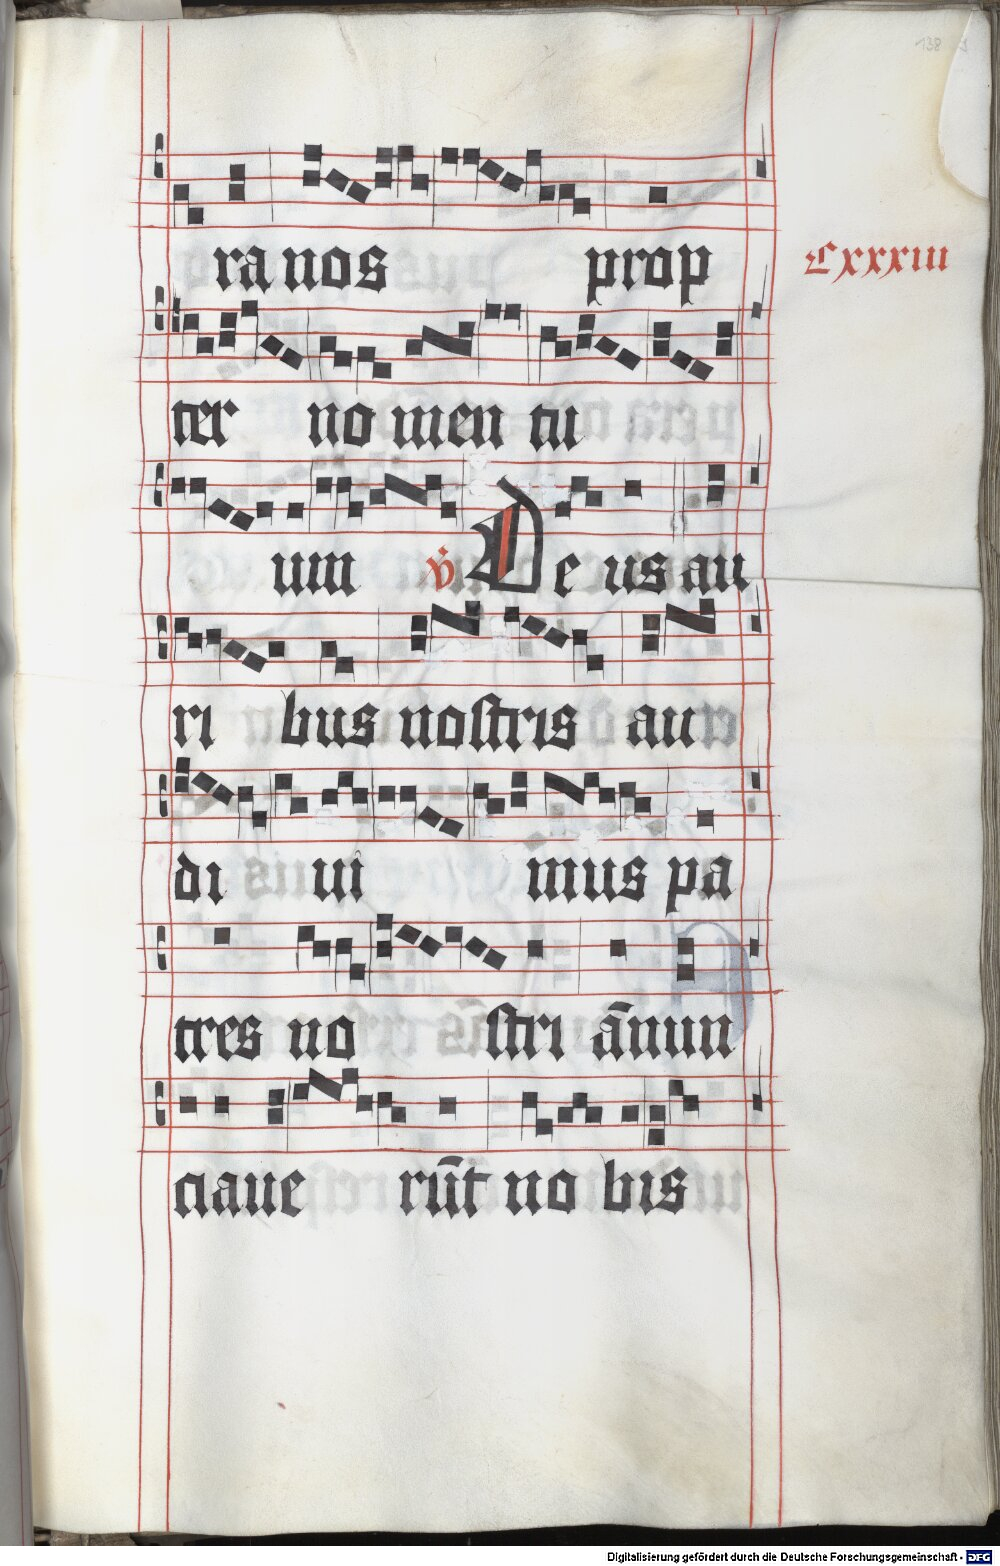 138
ra nos prop
Cxxxiii
ter no men tu
um v̇ De us au
ri bus nostris au
di ui mus pa
tres no stri ān̄un
ciaue rūt no bis
Digitalisierung gefördert durch die Deutsche Forschungsgemeinschaft - DFG